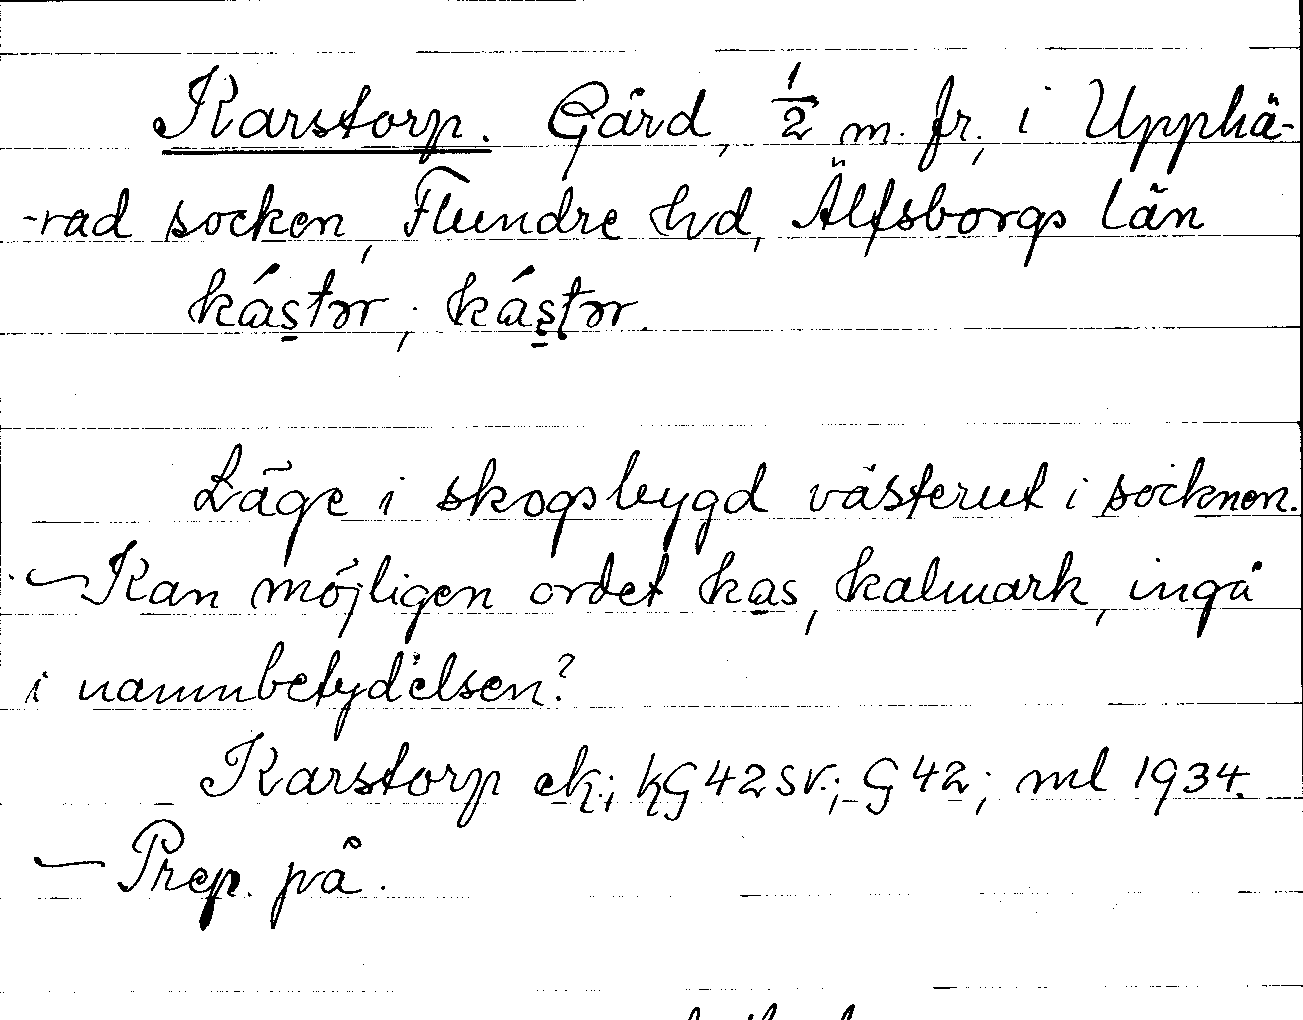 Karstorp. Gård, 1/2 m. fr., i Upphä-
-rad socken, Flundre hd, Älfsborgs län
kás̱tər; kás̱tər.
Läge i skogsbygd västerut i socknen.
— Kan möjligen ordet kas, kalmark, ingå
i namnbetydelsen?
Karstorp ek; kG42sv.; G42; ml 1934.
— Prep. på.